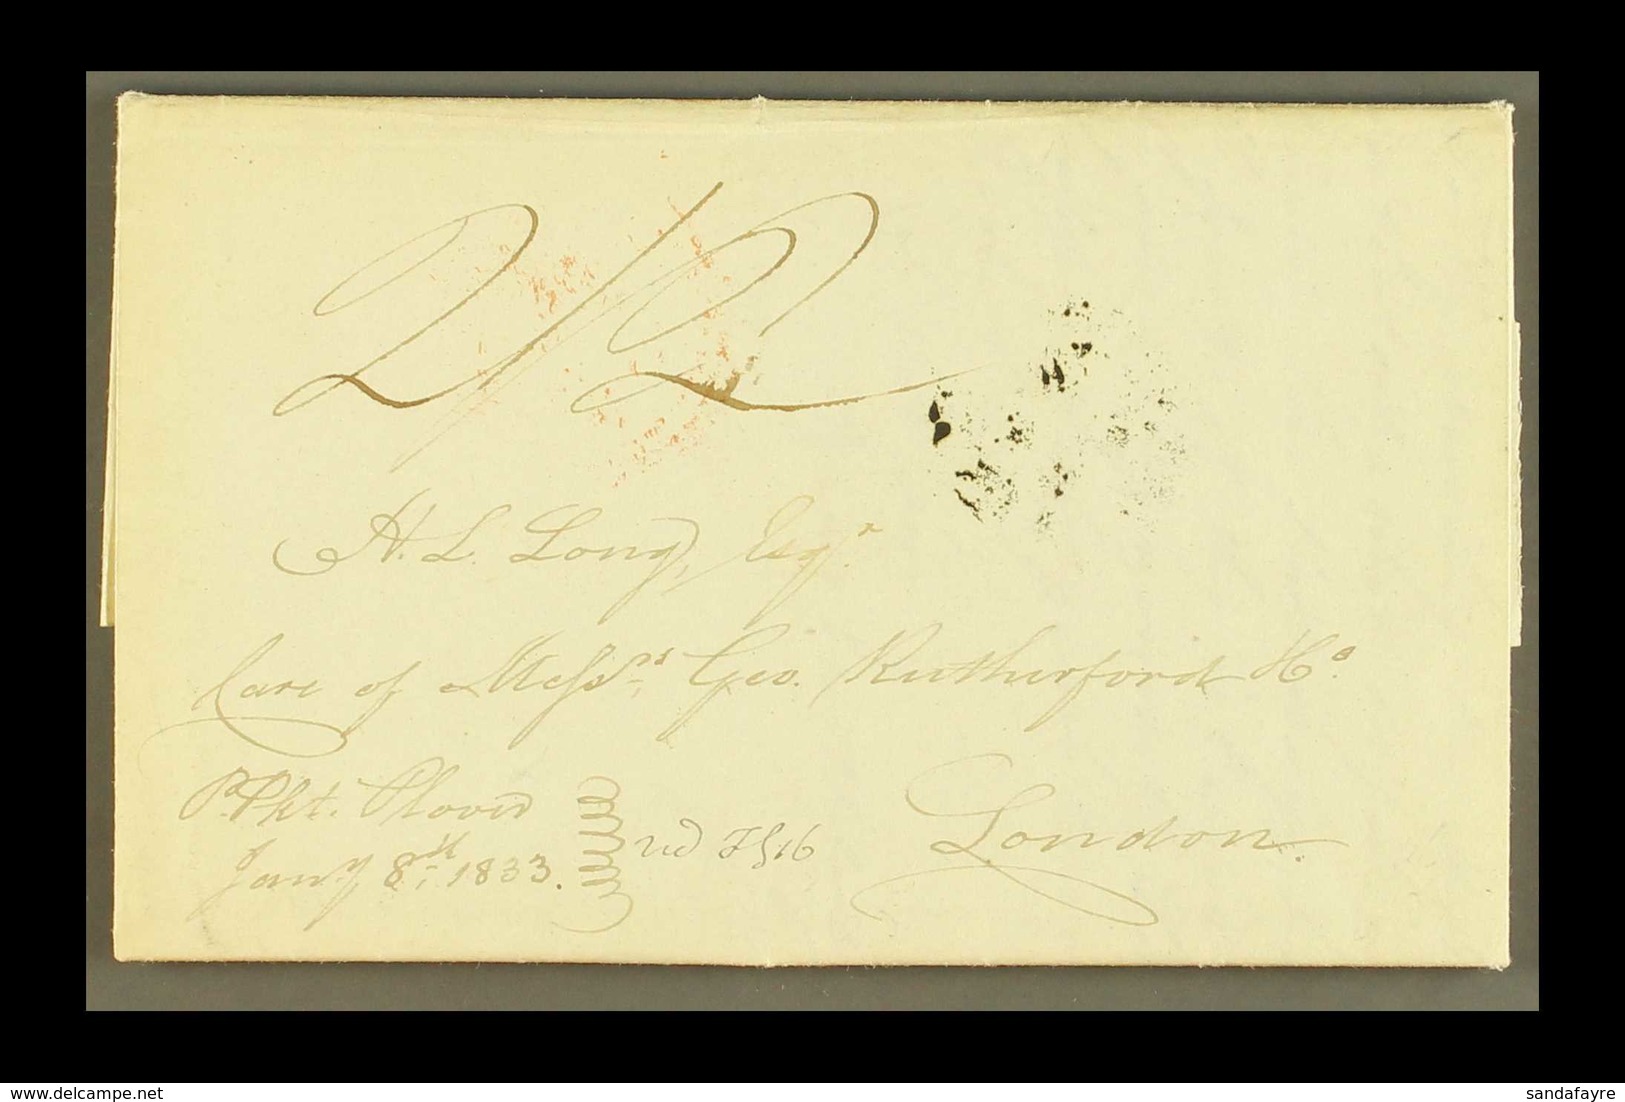 2/2
H. L. Long, Esqr.
Care of Messrs. Geo. Rutherford & Co.
London.
Pr. Pkt. Plover
Jany. 8th, 1833.
delcampe.net
sandafayre